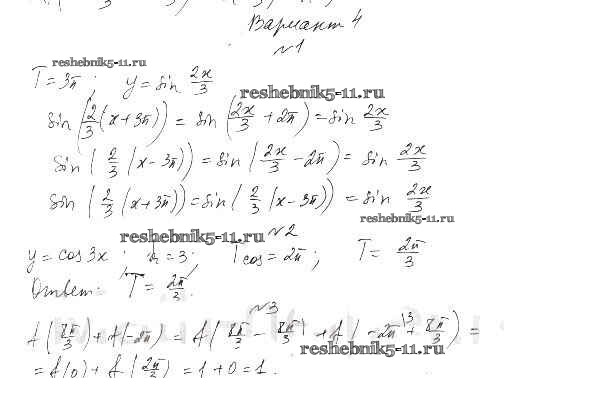 Вариант 4
№1
reshebnik5-11.ru
T = 3π ; y = sin 2x/3
reshebnik5-11.ru
sin(2/3(x+3π)) = sin(2x/3 + 2π) = sin 2x/3
sin(2/3(x-3π)) = sin(2x/3 - 2π) = sin 2x/3
sin(2/3(x+3π)) = sin(2/3(x-3π)) = sin 2x/3
reshebnik5-11.ru
reshebnik5-11.ru
№2
y = cos 3x ; k = 3 ; T cos = 2π ; T = 2π/3
Ответ: T = 2π/3.
№3
reshebnik5-11.ru
= f(0) + f(2π/3) = 1 + 0 = 1.